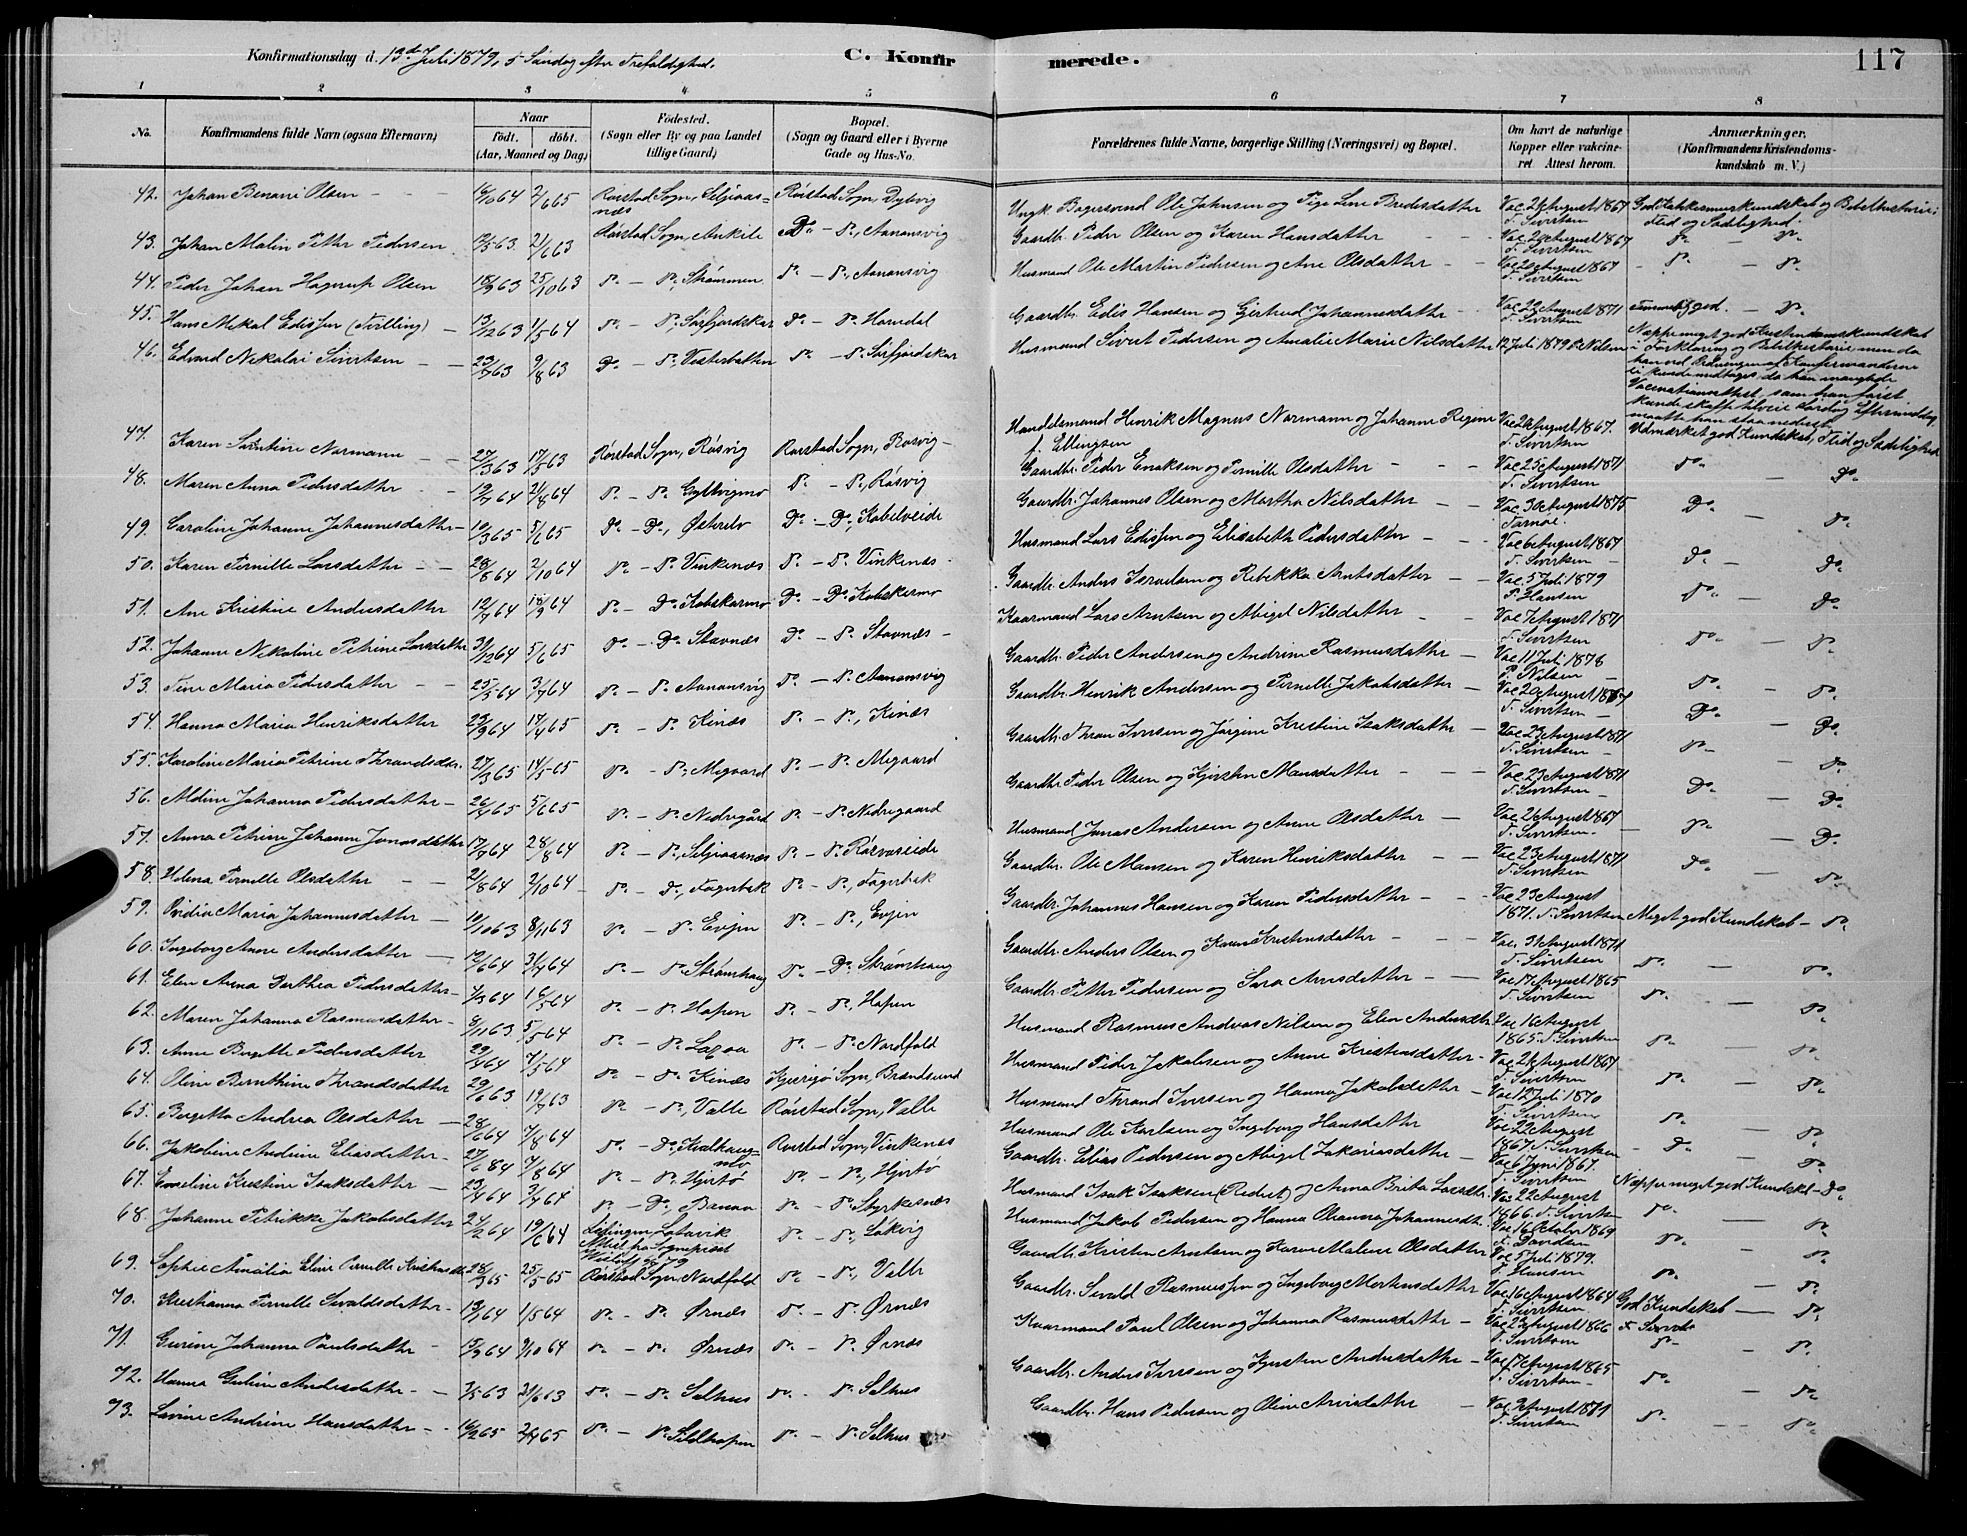 Konfirmationsdag d. 13de Juli 1879, 5 Søndag efter Trefoldighed.
C. Konfirmerede.
117
1 2 3 4 5 6 7 8
No.
Konfirmandens fulde Navn (ogsaa Efternavn)
Naar
født. døbt.
(Aar, Maaned og Dag)
Fødested.
(Sogn eller By og paa Landet tillige Gaard)
Bopæl.
(Sogn og Gaard eller i Byerne Gade og Hus-No.
Forældrenes fulde Navne, borgerlige Stilling (Næringsvei) og Bopæl.
Om havt de naturlige Kopper eller vakcineret. Attest herom.
Anmærkninger.
(Konfirmandens Kristendomskundskab m. V.)
42. Johan Benoni Olsen 16/10 64 2/6 65 Rørstad Sogn, Seljeaasnæs Rørstad Sogn, Dybvig Ungk. Ole Johnsen og Pige Line Pedersdatter Vac 24 August 1867 T. Sivertsen God Katekismuskundskab og Bibelhistorie; Flid og Sædelighed
43. Johan Malin Petter Pedersen 12/5 63 21/6 63 Rørstad Sogn, Ankile Do - Do, Aanansvig Gaardbr. Peder Olsen og Karen Hansdatter Vac 24 August 1867 T. Sivertsen Do - Do
44. Peder Johan Hagerup Olsen 18/9 63 25/10 63 Do - Do, Strømmen Do - Do, Aanansvig Husmand Ole Martin Pedersen og Ane Olsdatter Vac 20 August 1867 T. Sivertsen Do - Do
45. Hans Mikal Edissen (Tvilling) 13/12 63 1/5 64 Do - Do Sørfjordskar Do - Do Horndal Gaardbr. Edis Hansen og Gjertrud Johannesdatter Vac 22 August 1871 T. Sivertsen Temmelig god. - Do
46. Edvard Nikolai Sivertsen 23/7 63 9/8 63 Do - Do Vesterbotten Do - Do Sørfjordskar Husmand Sivert Pedersen og Amalie Marie Nilsdatter 12 Juli 1879 P. Nilsen Neppe meget god Kristendomskundskab i Forklaring og Bibelhistorie men da han ved Ordningen af Konfirmanderne ei kunde medtages, da han manglede Vacinationsattest, som han først kunde skaffe tilveie Lørdag Eftermiddag, maatte han staa nederst
47. Karen Sørentine Normann 27/3 63 17/5 63 Rørstad Sogn, Røsvig Rørstad Sogn, Røsvig Handelsmand Henrik Magnus Normann og Johanne Regine f. Ellingsen Vac 24 August 1867. T. Sivertsen Udmærket god Kundskab, Flid og Sædelighed
48. Maren Anna Pedersdatter 12/7 64 21/8 64 Do - Do Gyltvigmo Do - Do, Røsvig Gaardbr. Peder Enoksen og Pernille Olsdatter Vac 25 August 1871 T. Sivertsen Do - Do
49. Caroline Johanne Johannesdatter 10/3 65 5/6 65 Do - Do, Østerelv Do - Do, Kobelveide Gaardbr. Johannes Olsen og Martha Nilsdatter Vac 30 August 1875 Tarnæ. Do - Do
50. Karen Pernille Larsdatter 28/8 64 2/10 64 Do - Do Vinkenæs Do - Do Vinkenæs Husmand Lars Edissen og Elisabeth Pedersdatter Vac 6 August 1867 T. Sivertsen Do - Do
51. Ane Kristine Andersdatter 12/7 64 18/9 64 Do - Do Kobskarmo Do - Do Kobskarmo Gaardbr. Anders Israelsen og Rebekka Arntsdatter Vac 5 Juli 1879 P. Hansen Do - Do
52. Johanne Nikoline Petrine Larsdatter 31/12 64 5/6 65 Do - Do Stavnæs Do - Do Stavnæs Kaarmand Lars Arntsen og Abigel Nilsdatter Vac 7 August 1871 T. Sivertsen Do - Do
53. Tine Maria Pedersdatter 25/5 64 3/7 64 Do - Do Aanansvig Do - Do Aanansvig Gaardbr. Peder Andersen og Andrine Rasmusdatter Vac 11 Juli 1878 P. Nilsen Do - Do
54. Hanna Maria Henriksdatter 23/9 64 17/4 65 Do - Do Kinæs Do - Do, Kinæs Gaardbr. Henrik Andersen og Pernille Jakobsdatter Vac 20 August 1867 T. Sivertsen Do - Do
55. Karoline Maria Petrine Thrandsdtr. 27/3 65 14/5 65 Do - Do, Megaard Do - Do Megaard Gaardbr. Thran Iversen og Jørgine Kristine Isaksdatter Vac 23 August 1871 T. Sivertsen Do - Do
56. Aldine Johanna Pedersdatter 26/4 65 5/6 65 Do - Do Nedregård Do - Do Nedregaard Gaardbr Peder Olsen og Kjersten Mansdatter Vac 23 August 1871 T. Sivertsen Do - Do
57. Anna Petrine Johanne Jonasdatter 17/7 64 28/8 64 Do - Do, Seljeaasnæs Do - Do Rørvaseide Husmand Jonas Andersen og Anne Olsdatter Vac 24 August 1867 T. Sivertsen Do - Do
58. Helena Pernelle Olsdatter 2/8 64 2/10 64 Do - Do, Fagerbak Do - Do, Fagerbak Gaardbr. Ole Mansen og Karen Henriksdatter Vac 23 August 1871 T. Sivertsen Do - Do
59. Ovidia Maria Johannesdatter 10/10 63 8/11 63 Do - Do Evjen Do - Do, Evjen Gaardbr. Johannes Hansen og Karen Pedersdatter Vac 23 August 1871. T. Sivertsen Meget god Kundskab - Do
60. Ingeborg Anne Andersdatter 12/6 64 31/7 64 Do - Do Strømhaug Do - Do Strømhaug Gaardbr. Anders Olsen og Karen Kristensdatter Vac. 31 August 1871 T. Sivertsen Do - Do
61. Elen Anna Dorthea Pedersdatter 7/3 64 16/5 64 Do - Do Hopen Do - Do, Hopen Gaardbr. Petter Pedersen og Sara Arnsdatter Vac 17 August 1865 T. Sivertsen Do - Do
62. Maren Johanna Rasmusdatter 8/11 63 5/5 64 Do - Do Lagaa Do - Do Nordfold Husmand Rasmus Andreas Nilsen og Elen Andersdtr. Vac 16 August 1865. T. Sivertsen Do - Do
63. Anne Birgitte Pedersdatter 29/4 64 7/5 64 Do - Do Kinæs Kjerringø Sogn, Brændsund Husmand Peder Jakobsen og Anne Kristensdatter Vac 24 August 1867 T. Sivertsen Do - Do
64. Oline Bernthine Thrandsdatter 29/6 63 19/7 63 Do - Do, Valle Rørstad Sogn, Valle Husmand Thrand Iversen og Hanna Jakobsdatter Vac 12 Juli 1870 T. Sivertsen Do - Do
65. Birgitta Andrea Olsdatter 28/6 64 7/8 64 Do - Do, Kvalhaugmo Rørstad Sogn, Vinkenæs Husmand Ole Karlsen og Ingeborg Hansdatter Vac 22 August 1867. T. Sivertsen Do - Do
66. Jakobine Andrine Eliasdatter 27/6 64 7/8 64 Do - Do Hjertø Do - Do, Hjertø Gaardbr. Elias Pedersen og Abigel Zakariasdatter Vac 6 Juni 1867. T. Sivertsen Do - Do
67. Emeline Kristine Isaksdatter 23/4 64 3/7 64 Do - Do, Bonaa Do - Do Styrkesnæs Husmand Isak Isaksen (Rideret) og Anna Brita Larsdtr. Vac 22 August 1866. T. Sivertsen Neppe meget god Kundskab - Do
68. Johanne Petrikke Jakobsdatter 24/2 64 19/6 64 Lødingen Attest fra Sognepræst Do - Do, Løkvig Husmand Jakob Pedersen og Hanna Oleanna Johannesdtr. Vac 16 October 1869 T. Davidsen Do - Do
69. Sophie Amalia Eline Pernille Kristensdtr 28/3 65 25/5 65 Rørstad Sogn Nordfold Do - Do, Valle Gaardbr. Kristen Arntsen og Karen Malene Olsdatter Vac 5 Juli 1879. P. Hansen Do - Do
70. Kristianna Pernille Sivaldsdatter 19/1 64 1/5 64 Do - Do Ørnæs Do - Do. Ørnæs Gaardbr. Sivald Rasmussen og Ingeborg Mortensdatter Vac 16 August 1864 T. Sivertsen God Kundskab - Do
71. Gurine Johanna Paulsdatter 15/9 64 9/10 64 Do - Do. Ørnæs Do - Do. Ørnæs Kaarmand Paul Olsen og Johanna Rasmusdatter Vac 23 August 1866 T. Sivertsen Do - Do
72. Hanna Guline Andersdatter 3/5 63 21/6 63 Do - Do. Selhus Do. - Do. Selhus Gaardbr. Anders Iversen og Kjersten Andersdatter Vac 17 August 1865 T. Sivertsen Do - Do
73. Lavine Andrine Hansdatter 16/2 65 2/4 65 Do - Do Sildhopen Do - Do Selhus Gaardbr. Hans Pedersen og Oline Arnsdatter Vac 2 August 1871 T. Sivertsen Do - Do